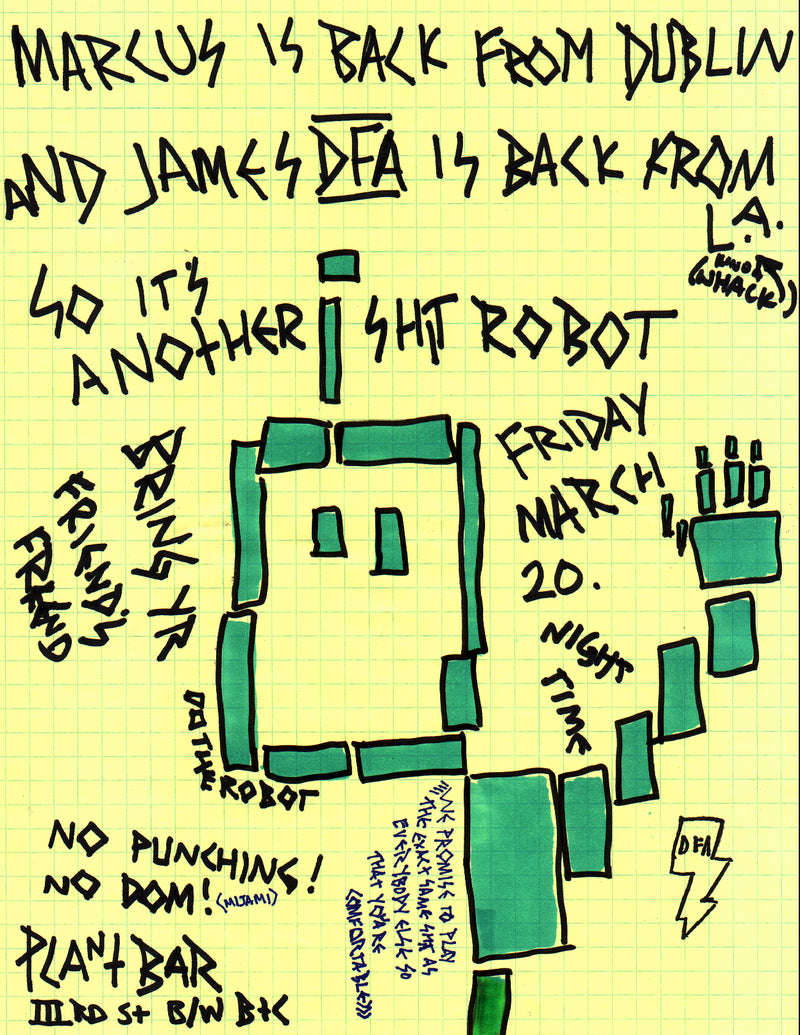 MARCUS IS BACK FROM DUBLIN
AND JAMES DFA IS BACK FROM
L.A.
(KINDA
WHACK)
SO IT'S
ANOTHER SHIT ROBOT
FRIDAY
MARCH
20.
NIGHT
TIME
BRING YR
FRIEND'S
FRIEND
DO THEE
ROBOT
WE PROMISE TO PLAY
THE EXACT SAME SHIT AS
EVERYBODY ELSE SO
THAT YOU'RE
COMFORTABLE)))
DFA
NO PUNCHING!
NO DOM! (MIJAMI)
PLANT BAR
III RD St B/W B+C